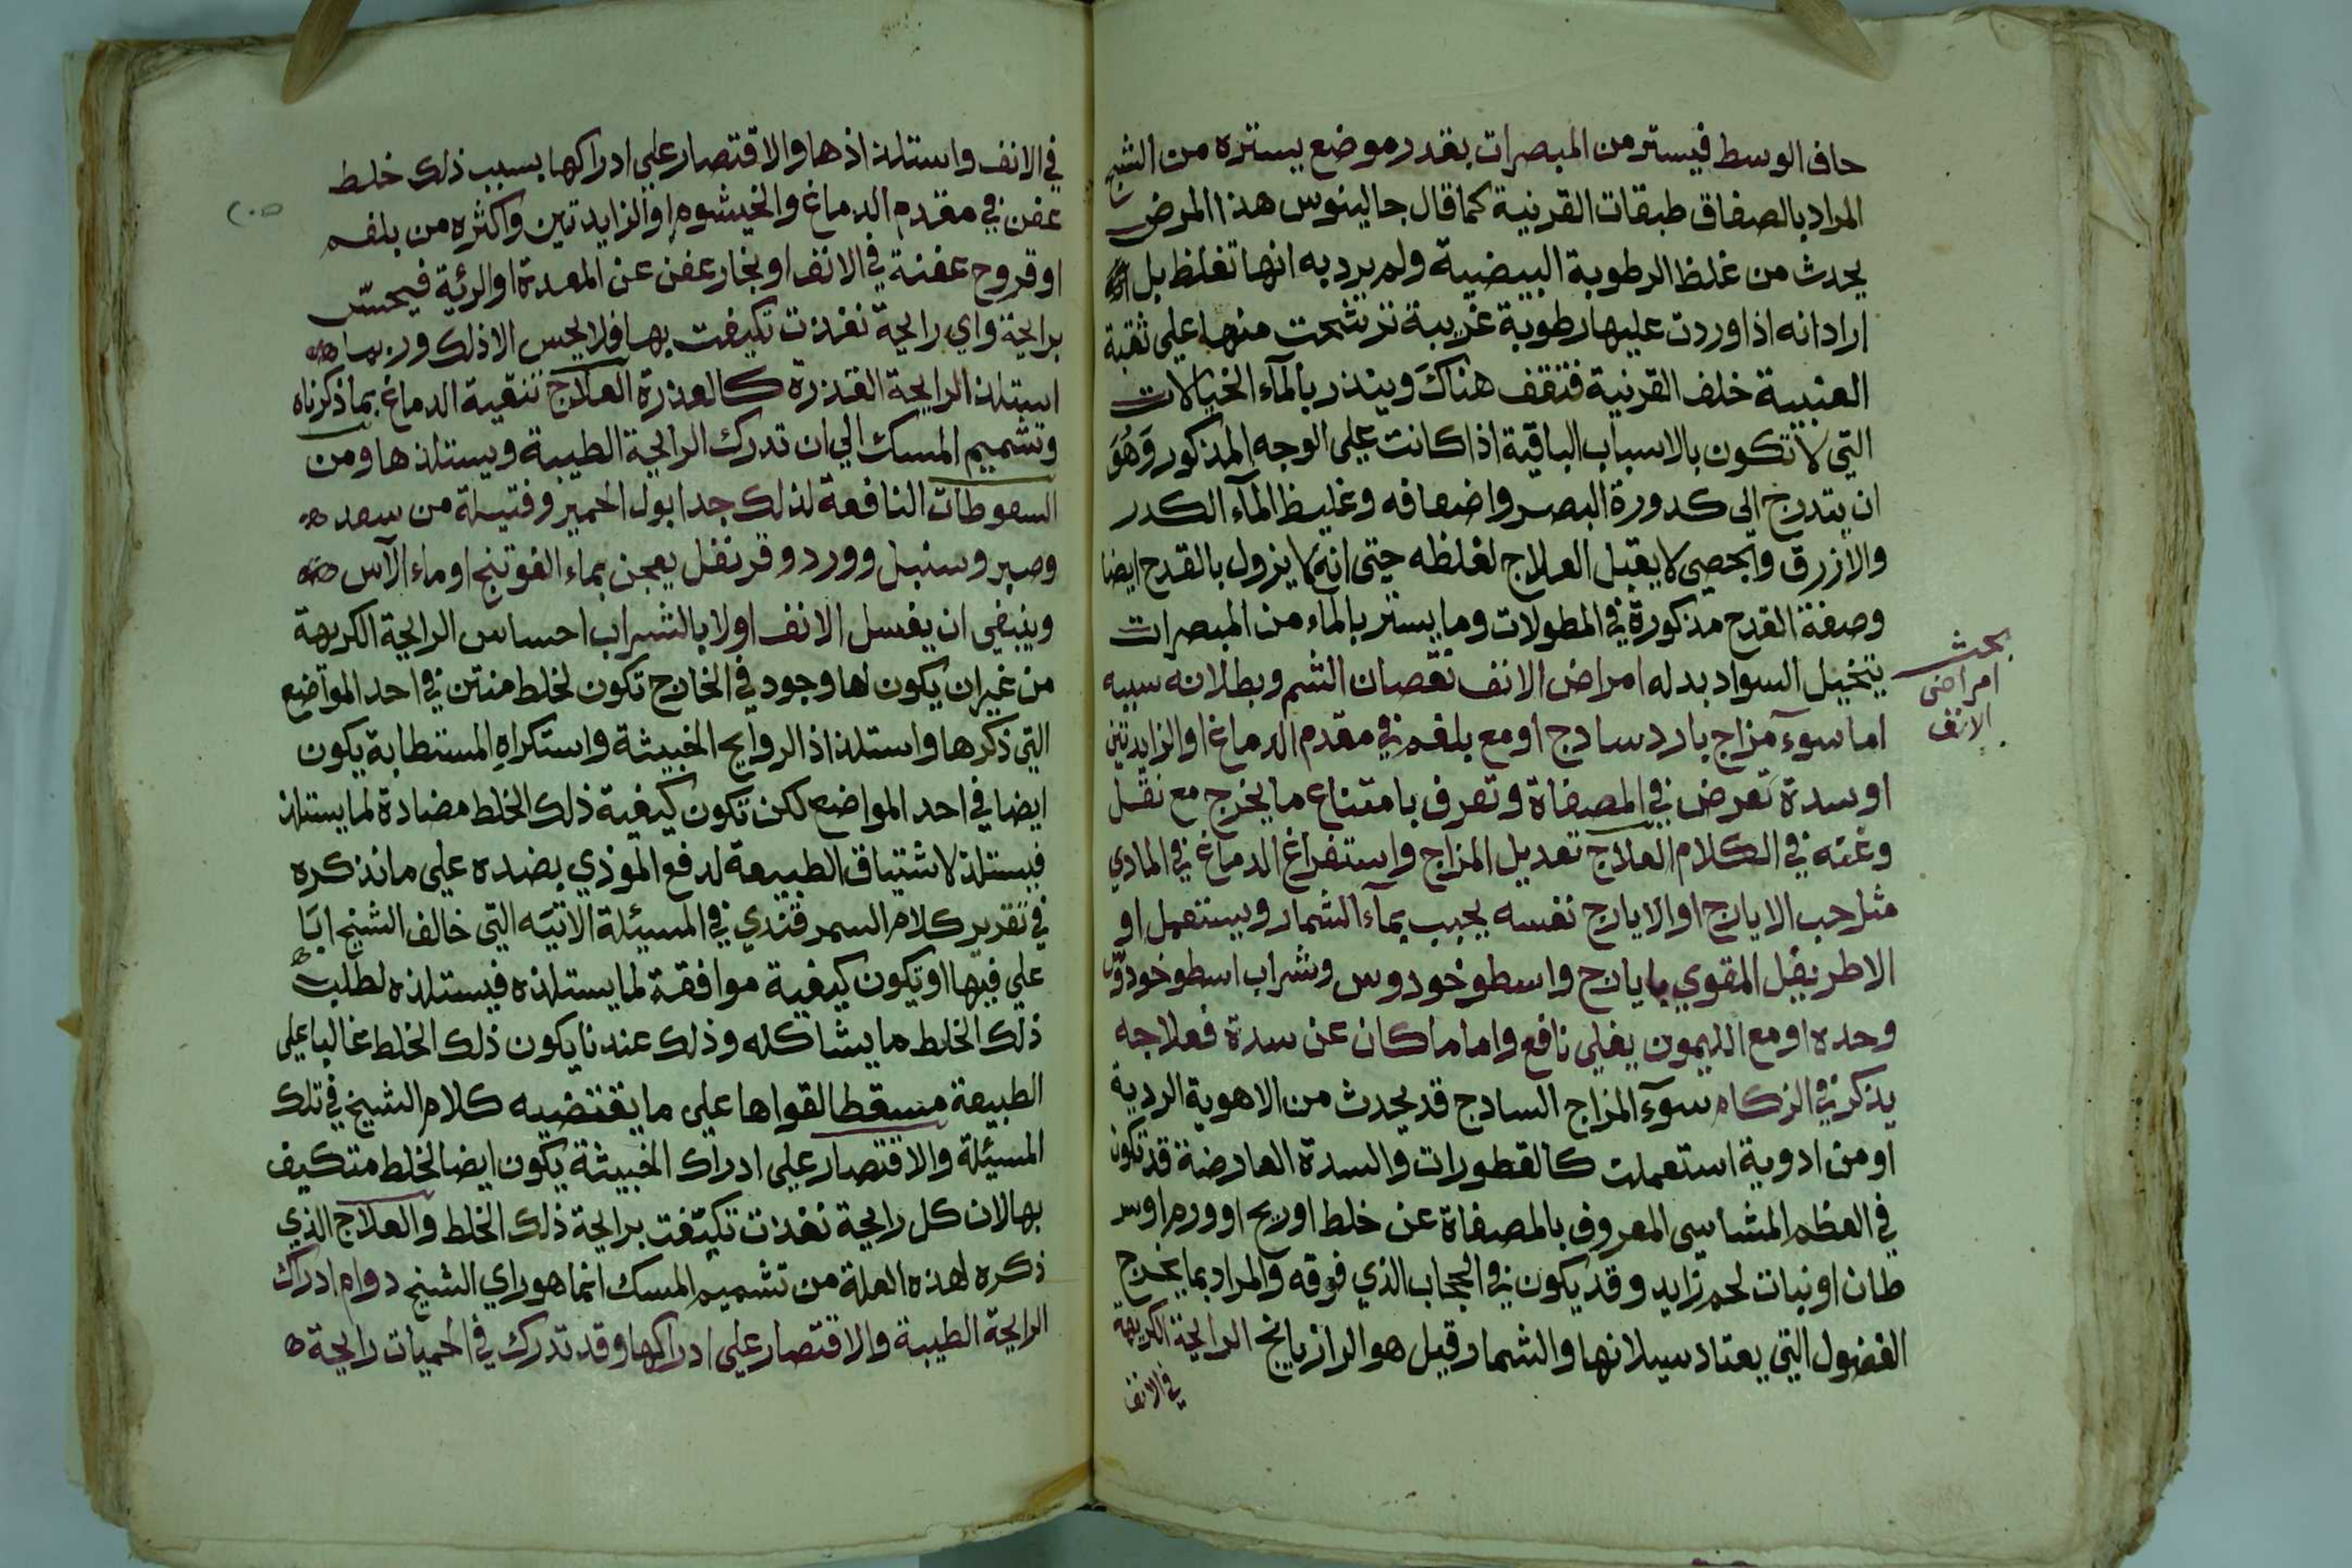 حاف الوسط فيستر من المبصرات بقدر موضع يستره من الشبح
المراد بالصفاق طبقات القرنية كما قال جالينوس هذا المرض
يحدث من غلظ الرطوبة البيضية ولم يرد به انها تغلظ بل
اراد انه اذا وردت عليها رطوبة غريبة ترشحت منها على ثقبة
العنبية خلف القرنية فتقف هناك وينذر بالمآء الخيالات
التي لا تكون بالاسباب الباقية اذا كانت على الوجه المذكور وهو
ان يتدرج الى كدورة البصر واضعافه وغليظ المآء الكدر
والازرق والجصي لا يقبل العلاج لغلظه حتى انه لا يزول بالقدح ايضا
وصفة القدح مذكورة في المطولات وما يستر بالماء من المبصرات
يتخيل السواد بدله امراض الانف نقصان الشم وبطلانه سببه
بحث
امراض
الانف
اما سوء مزاج بارد سادج او مع بلغم في مقدم الدماغ او الزايدتين
او سدة تعرض في المصفاة وتعرف بامتناع ما يخرج مع ثقل
وغنه في الكلام العلاج تعديل المزاج واستفراغ الدماغ في المادي
مثل حب الايارج او الايارج نفسه يحبب بمآء الشمار ويستعمل او
الاطريفل المقوي بايارج واسطوخودوس وشراب اسطوخودوس
وحده او مع الليمون يغلي نافع واما ما كان عن سدة فعلاجه
يذكر في الزكام سوء المزاج السادج قد يحدث من الاهوية الردية
او من ادوية استعملت كالقطورات والسدة العارضة قد تكون
في العظم المشاسي المعروف بالمصفاة عن خلط او ريح او ورم او سر
طان او نبات لحم زايد وقد يكون في الحجاب الذي فوقه والمراد بما يخرج
الفضول التي يعتاد سيلانها والشمار قيل هو الرازيانج الرايحة الكريهة
في الانف
في الانف واستلذاذها والاقتصار على ادراكها بسبب ذلك خلط
عفن في مقدم الدماغ والخيشوم او الزايدتين واكثره من بلغم
او قروح عفنة في الانف او بخار عفن عن المعدة او الرئة فيحس
برايحة واي رايحة نفذت تكيفت بها فلا يحس الا ذلك وربما
استلذ الرايحة القذرة كالعذرة العلاج تنقية الدماغ بما ذكرناه
وتشميم المسك الي ان تدرك الرايحة الطيبة ويستلذها ومن
السعوطات النافعة لذلك جدا بول الحمير وفتيلة من سعد
وصبر وسنبل وورد وقرنفل يعجن بماء الفوتنج او ماء الآس
وينبغي ان يغسل الانف اولا بالشراب احساس الرايحة الكريهة
من غير ان يكون لها وجود في الخارج تكون لخلط منتن في احد المواضع
التي ذكرها واستلذاذ الروايح الخبيثة واستكراه المستطابة يكون
ايضا في احد المواضع لكن تكون كيفية ذلك الخلط مضادة لما يستلذ
فيستلذ لاشتياق الطبيعة لدفع الموذي بضده على ما نذكره
في تقرير كلام السمرقندي في المسئلة الاتيه التي خالف الشيخ ابا
علي فيها او تكون كيفية موافقة لما يستلذه فيستلذه لطلب
ذلك الخلط ما يشاكله وذلك عندنا يكون ذلك الخلط غالبا على
الطبيعة مسقطا لقواها على ما يقتضيه كلام الشيخ في تلك
المسئلة والاقتصار على ادراك الخبيثة يكون ايضا لخلط متكيف
بها لان كل رايحة نفذت تكيفت برايحة ذلك الخلط والعلاج الذي
ذكره لهذه العلة من تشميم المسك انما هو راي الشيخ دوام ادراك
الرايحة الطيبة والاقتصار على ادراكها وقد تدرك في الحميات رايحة